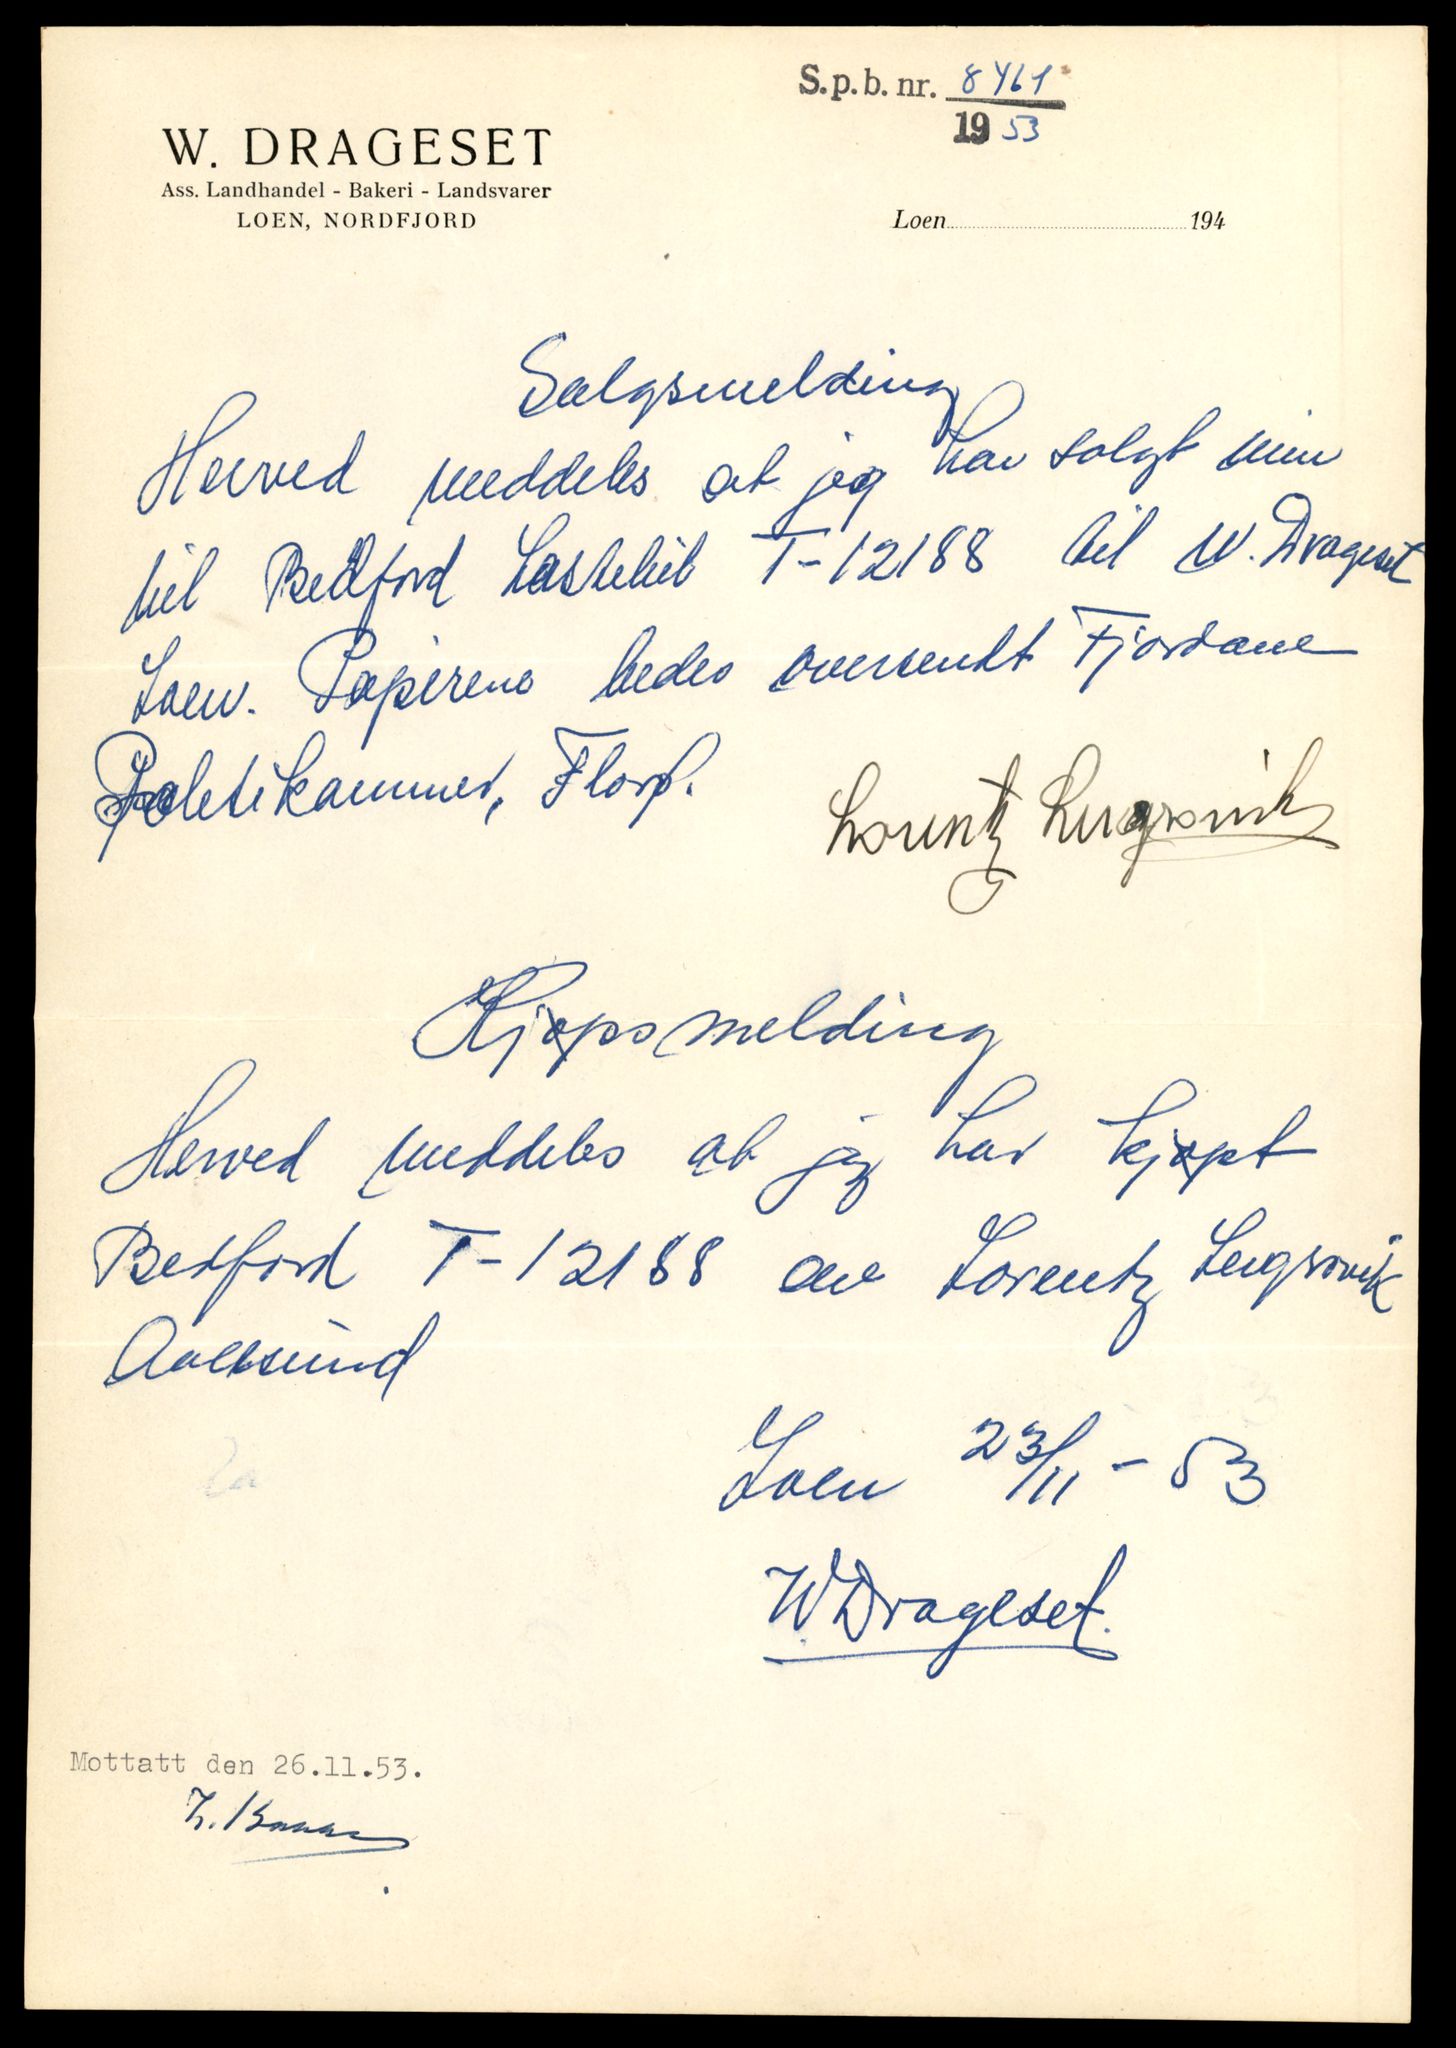 S.p.b. nr. 8461
1953
W. DRAGESET
Ass. Landhandel - Bakeri - Landsvarer
LOEN, NORDFJORD
Loen 194
Salgsmelding
Herved meddeles at jeg har solgt min
bil Bedford Lastebil T-12188 til W. Drageset
Loen. Papirene bedes oversendt Fjordane
Politikammer, Florø.
Lorentz
Kjøpsmelding
Herved meddeles at jeg har kjøpt
Bedford T-12188 av Lorentz
Aalesund
Loen 23/11 - 53
W. Drageset.
Mottatt den 26.11.53.